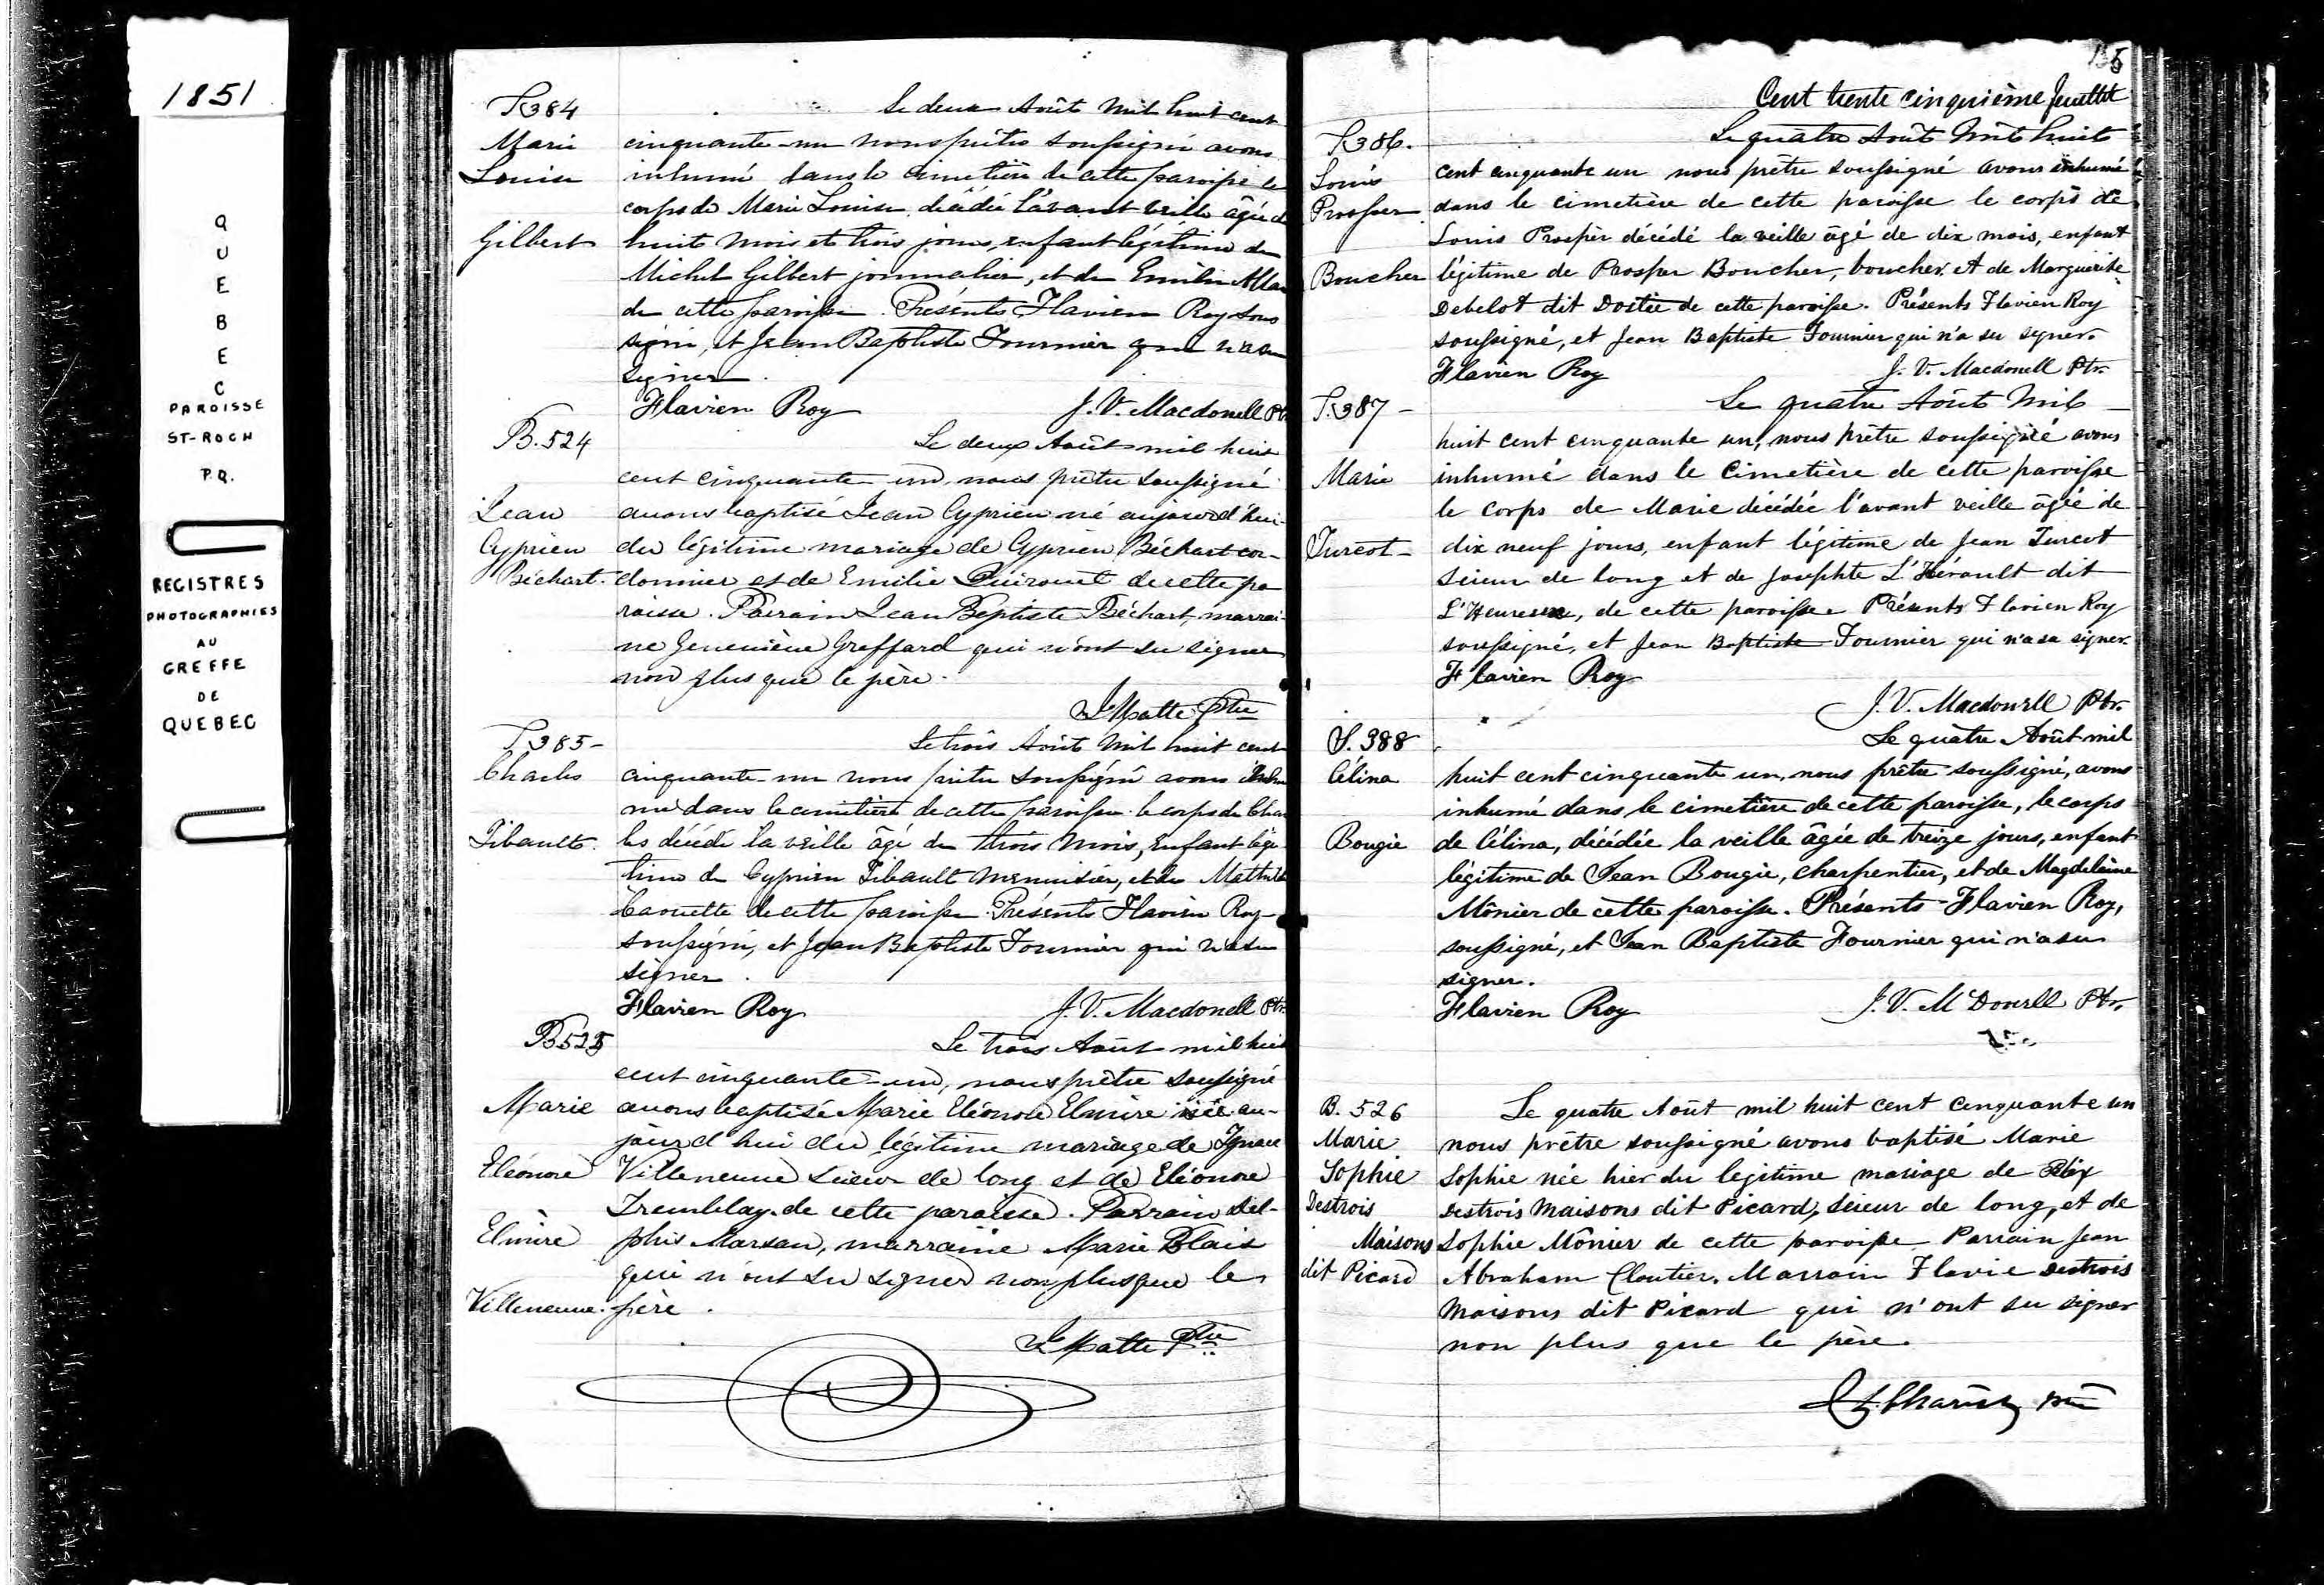 1851
QUEBEC
PAROISSE
ST-ROCH
P.Q.
REGISTRES
PHOTOGRAPHIES
AU
GREFFE
DE
QUEBEC
S.384
Marie
Louise
Gilbert
Le deux Août mil huit cent
cinquante-un nous prêtre soussigné avons
inhumé dans le cimetière de cette paroisse le
corps de Marie Louise décédée l'avant veille âgée de
huit mois et trois jours, enfant légitime de
Michel Gilbert journalier, et de Emilie Allar
de cette paroisse. Présents Flavien Roy sous
signé, et Jean Baptiste Fournier qui n'a su
signer.
Flavien Roy J. V. Macdonell Ptr.
B.524
Jean
Cyprien
Béchart.
Le deux Août mil huit
cent cinquante-un, nous prêtre soussigné
avons baptisé Jean Cyprien né aujourd'hui
du légitime mariage de Cyprien Béchart cor-
donnier et de Emilie de cette pa
roisse. Parrain Jean Baptiste Béchart, marrai-
ne Genevieve Greffard qui n'ont su signer
non plus que le père.
Matte Ptre
S.385-
Charles
Tibault.
Le trois Août mil huit cent
cinquante-un nous prêtre soussigné avons inhu
mé dans le cimetière de cette paroisse le corps de Char
les décédé la veille âgé de trois mois, enfant légi
time de Cyprien Tibault menuisier, et de Mathilde
Barrette de cette paroisse. Présents Flavien Roy
soussigné, et Jean Baptiste Fournier qui n'a su
signer.
Flavien Roy J. V. Macdonell Ptr.
B525
Marie
Eléonore
Elmire
Villeneuve.
Le trois Août mil huit
cent cinquante-un, nous prêtre soussigné
avons baptisé Marie Eléonore Elmire née au-
jourd'hui du légitime mariage de Ignace
Villeneuve scieur de long et de Eléonore
Tremblay de cette paroisse. Parrain Del-
phis Marsan, marraine Marie Blais
qui n'ont su signer non plus que le
père.
Matte Ptre
135
Cent trente cinquième feuillet
S.386.
Louis
Prosper
Boucher
Le quatre Août Mil huit
cent cinquante un nous prêtre soussigné avons inhumé
dans le cimetière de cette paroisse le corps de
Louis Prospèr décédé la veille âgé de dix mois, enfant
légitime de Prosper Boucher, boucher. et de Marguerite
Debelot dit Dostie de cette paroisse. Présents Flavien Roy
soussigné, et Jean Baptiste Fournier qui n'a su signer.
Flavien Roy J. V. Macdonell Ptr.
S.387-
Marie
Turcot-
Le quatre Août Mil
huit cent cinquante un, nous prêtre soussigné avons
inhumé dans le Cimetière de cette paroisse
le corps de Marie décédée l'avant veille âgée de
dix neuf jours, enfant légitime de Jean Turcot
scieur de long et de Josephte L'Hérault dit
L'Heureux, de cette paroisse. Présents Flavien Roy
soussigné, et Jean Baptiste Fournier qui n'a su signer.
Flavien Roy
J. V. Macdonell Ptr.
S.388
Célina
Bougie
Le quatre Août mil
huit cent cinquante un, nous prêtre soussigné, avons
inhumé dans le cimetière de cette paroisse, le corps
de Célina, décédée la veille âgée de treize jours, enfant
légitime de Jean Bougie, charpentier, et de Magdeleine
Mônier de cette paroisse. Présents Flavien Roy,
soussigné, et Jean Baptiste Fournier qui n'a su
signer.
Flavien Roy J. V. McDonell Ptr.
B. 526
Marie
Sophie
Destrois
Maisons
dit Picard
Le quatre Août mil huit cent cinquante un
nous prêtre soussigné avons baptisé Marie
Sophie née hier du legitime mariage de Félix
Destrois Maisons dit Picard, scieur de long, et de
Sophie Mônier de cette paroisse Parrain Jean
Abraham Cloutier. Marrain Flavie Destrois
Maisons dit Picard qui n'ont su signer
non plus que le père.